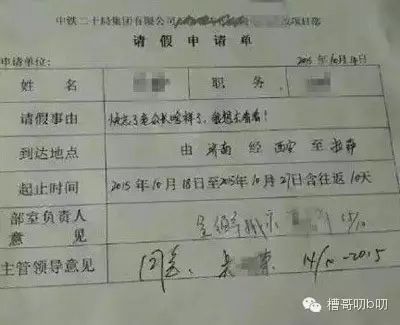 中铁二十局集团有限公司 改项目部
请假申请单
申请单位: 2015年10月14日
姓名 职务
请假事由 快忘了老公长啥样了,我想去看看!
到达地点 由 济南 经 西安 至 拉萨
起止时间 2015年10月18日至2015年10月27日含往返10天
部室负责人
意见
主管领导意见 同意. 14/10-2015
槽哥叨b叨